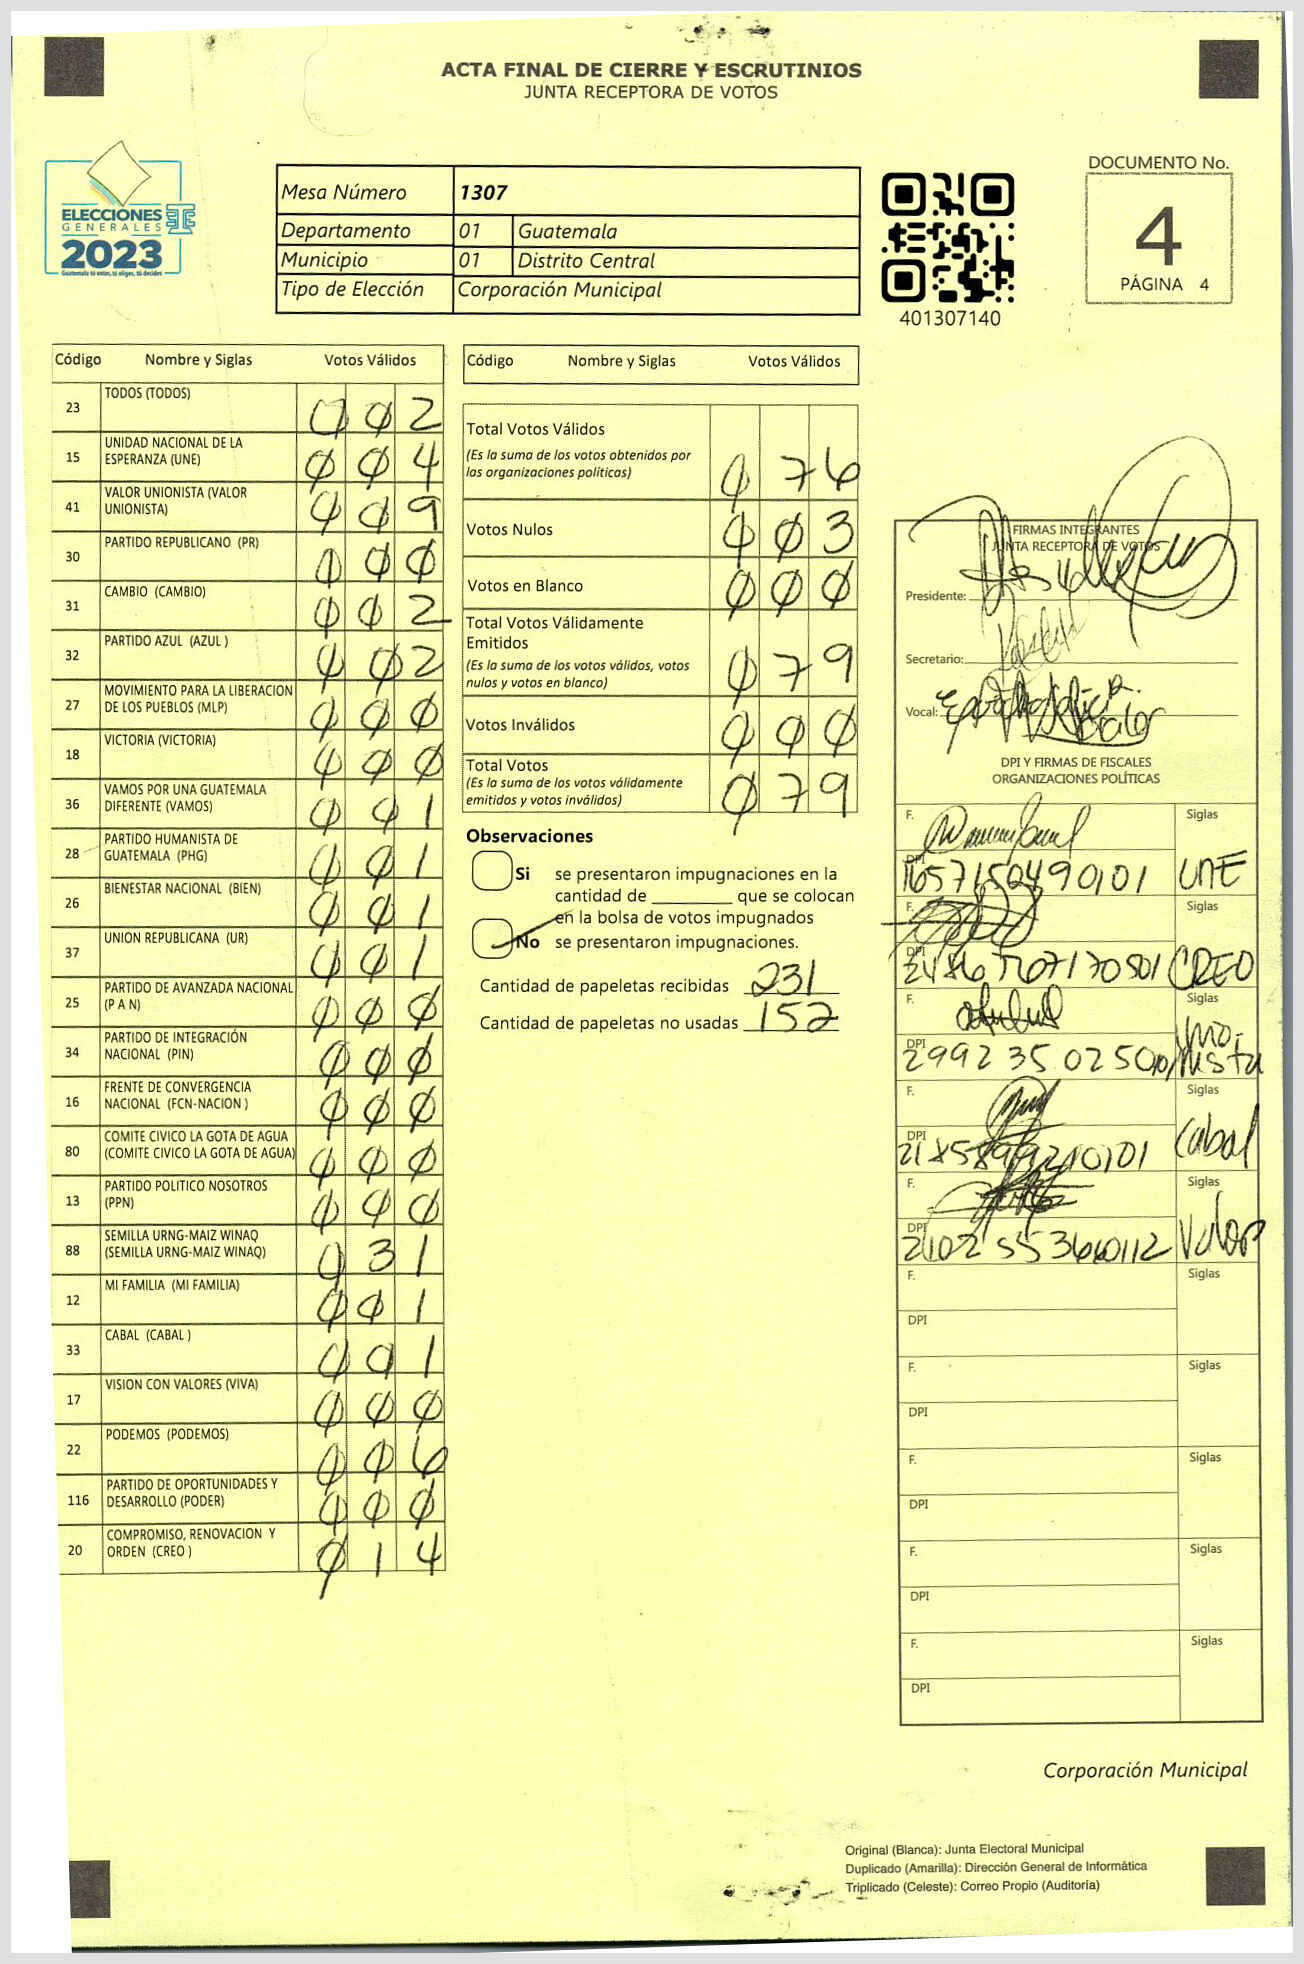 ACTA FINAL DE CIERRE Y ESCRUTINIOS
JUNTA RECEPTORA DE VOTOS
ELECCIONES
GENERALES
2023
Guatemala tú votas, tú eliges, tú decides
Mesa Número 1307
Departamento 01 Guatemala
Municipio 01 Distrito Central
Tipo de Elección Corporación Municipal
401307140
DOCUMENTO No.
4
PÁGINA 4
Código Nombre y Siglas Votos Válidos
23 TODOS (TODOS) 002
15 UNIDAD NACIONAL DE LA
ESPERANZA (UNE) 004
41 VALOR UNIONISTA (VALOR
UNIONISTA) 009
30 PARTIDO REPUBLICANO (PR) 000
31 CAMBIO (CAMBIO) 002
32 PARTIDO AZUL (AZUL ) 002
27 MOVIMIENTO PARA LA LIBERACION
DE LOS PUEBLOS (MLP) 000
18 VICTORIA (VICTORIA) 000
36 VAMOS POR UNA GUATEMALA
DIFERENTE (VAMOS) 001
28 PARTIDO HUMANISTA DE
GUATEMALA (PHG) 001
26 BIENESTAR NACIONAL (BIEN) 001
37 UNION REPUBLICANA (UR) 001
25 PARTIDO DE AVANZADA NACIONAL
(P A N) 000
34 PARTIDO DE INTEGRACIÓN
NACIONAL (PIN) 000
16 FRENTE DE CONVERGENCIA
NACIONAL (FCN-NACION ) 000
80 COMITE CIVICO LA GOTA DE AGUA
(COMITE CIVICO LA GOTA DE AGUA) 000
13 PARTIDO POLITICO NOSOTROS
(PPN) 000
88 SEMILLA URNG-MAIZ WINAQ
(SEMILLA URNG-MAIZ WINAQ) 031
12 MI FAMILIA (MI FAMILIA) 001
33 CABAL (CABAL ) 001
17 VISION CON VALORES (VIVA) 000
22 PODEMOS (PODEMOS) 006
116 PARTIDO DE OPORTUNIDADES Y
DESARROLLO (PODER) 000
20 COMPROMISO, RENOVACION Y
ORDEN (CREO ) 014
Código Nombre y Siglas Votos Válidos
Total Votos Válidos
(Es la suma de los votos obtenidos por
las organizaciones políticas) 076
Votos Nulos 003
Votos en Blanco 000
Total Votos Válidamente
Emitidos
(Es la suma de los votos válidos, votos
nulos y votos en blanco) 079
Votos Inválidos 000
Total Votos
(Es la suma de los votos válidamente
emitidos y votos inválidos) 079
Observaciones
Si se presentaron impugnaciones en la
cantidad de ________ que se colocan
en la bolsa de votos impugnados
No se presentaron impugnaciones.
Cantidad de papeletas recibidas 231
Cantidad de papeletas no usadas 152
FIRMAS INTEGRANTES
JUNTA RECEPTORA DE VOTOS
Presidente:
Secretario:
Vocal:
DPI Y FIRMAS DE FISCALES
ORGANIZACIONES POLÍTICAS
F. Siglas
DPI UNE
F. Siglas
DPI CREO
F. Siglas
DPI
F. Siglas
DPI Cabal
F. Siglas
DPI Valor
F. Siglas
DPI
F. Siglas
DPI
F. Siglas
DPI
F. Siglas
DPI
F. Siglas
DPI
Corporación Municipal
Original (Blanca): Junta Electoral Municipal
Duplicado (Amarilla): Dirección General de Informática
Triplicado (Celeste): Correo Propio (Auditoría)